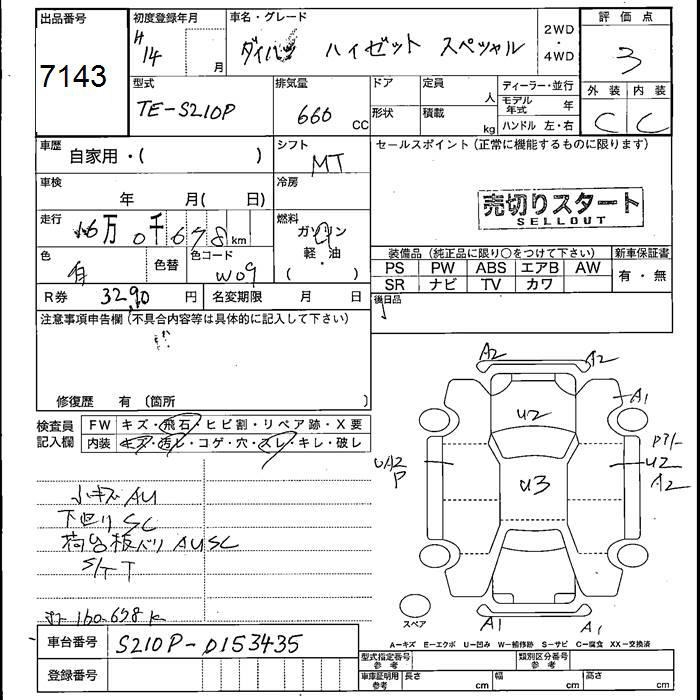 出品番号
7143
初度登録年月
H
14
月
車名・グレード
ダイハツ ハイゼット スペシャル
2WD
・
4WD
評価点
3
型式
TE-S210P
排気量
660
CC
ドア
形状
定員
人
積載
kg
ディーラー・並行
モデル年式
年
ハンドル 左・右
外装
内装
C
C
車歴
自家用・( )
シフト
MT
セールスポイント(正常に機能するものに限ります)
車検
年 月( 日)
冷房
売切りスタート
SELLOUT
走行
16万 0千 678 km
燃料
ガソリン
軽・油
( )
色
白
色替
色コード
W09
装備品 (純正品に限り○をつけて下さい)
新車保証書
PS PW ABS エアB AW
SR ナビ TV カワ
有・無
R券
3290 円
名変期限 月 日
後日品
注意事項申告欄(不具合内容等は具体的に記入して下さい)
修復歴 有 (箇所 )
検査員
記入欄
FW キズ・飛石・ヒビ割・リペア跡・X要
内装 キズ・汚レ・コゲ・穴・スレ・キレ・破レ
A2
A2
A1
U2
UA2
P
U3
U2
A2
小キズ AU
下回り SC
荷台板バリ AUSC
S/T T
160.678 K
A1
A1
スペア
A-キズ E-エクボ U-凹み W-補修跡 S-サビ C-腐食 XX-交換済
車台番号
S210P-0153435
登録番号
型式指定番号
参考
類別区分番号
参考
車庫証明用
参考
長さ
cm
幅
cm
高さ
cm